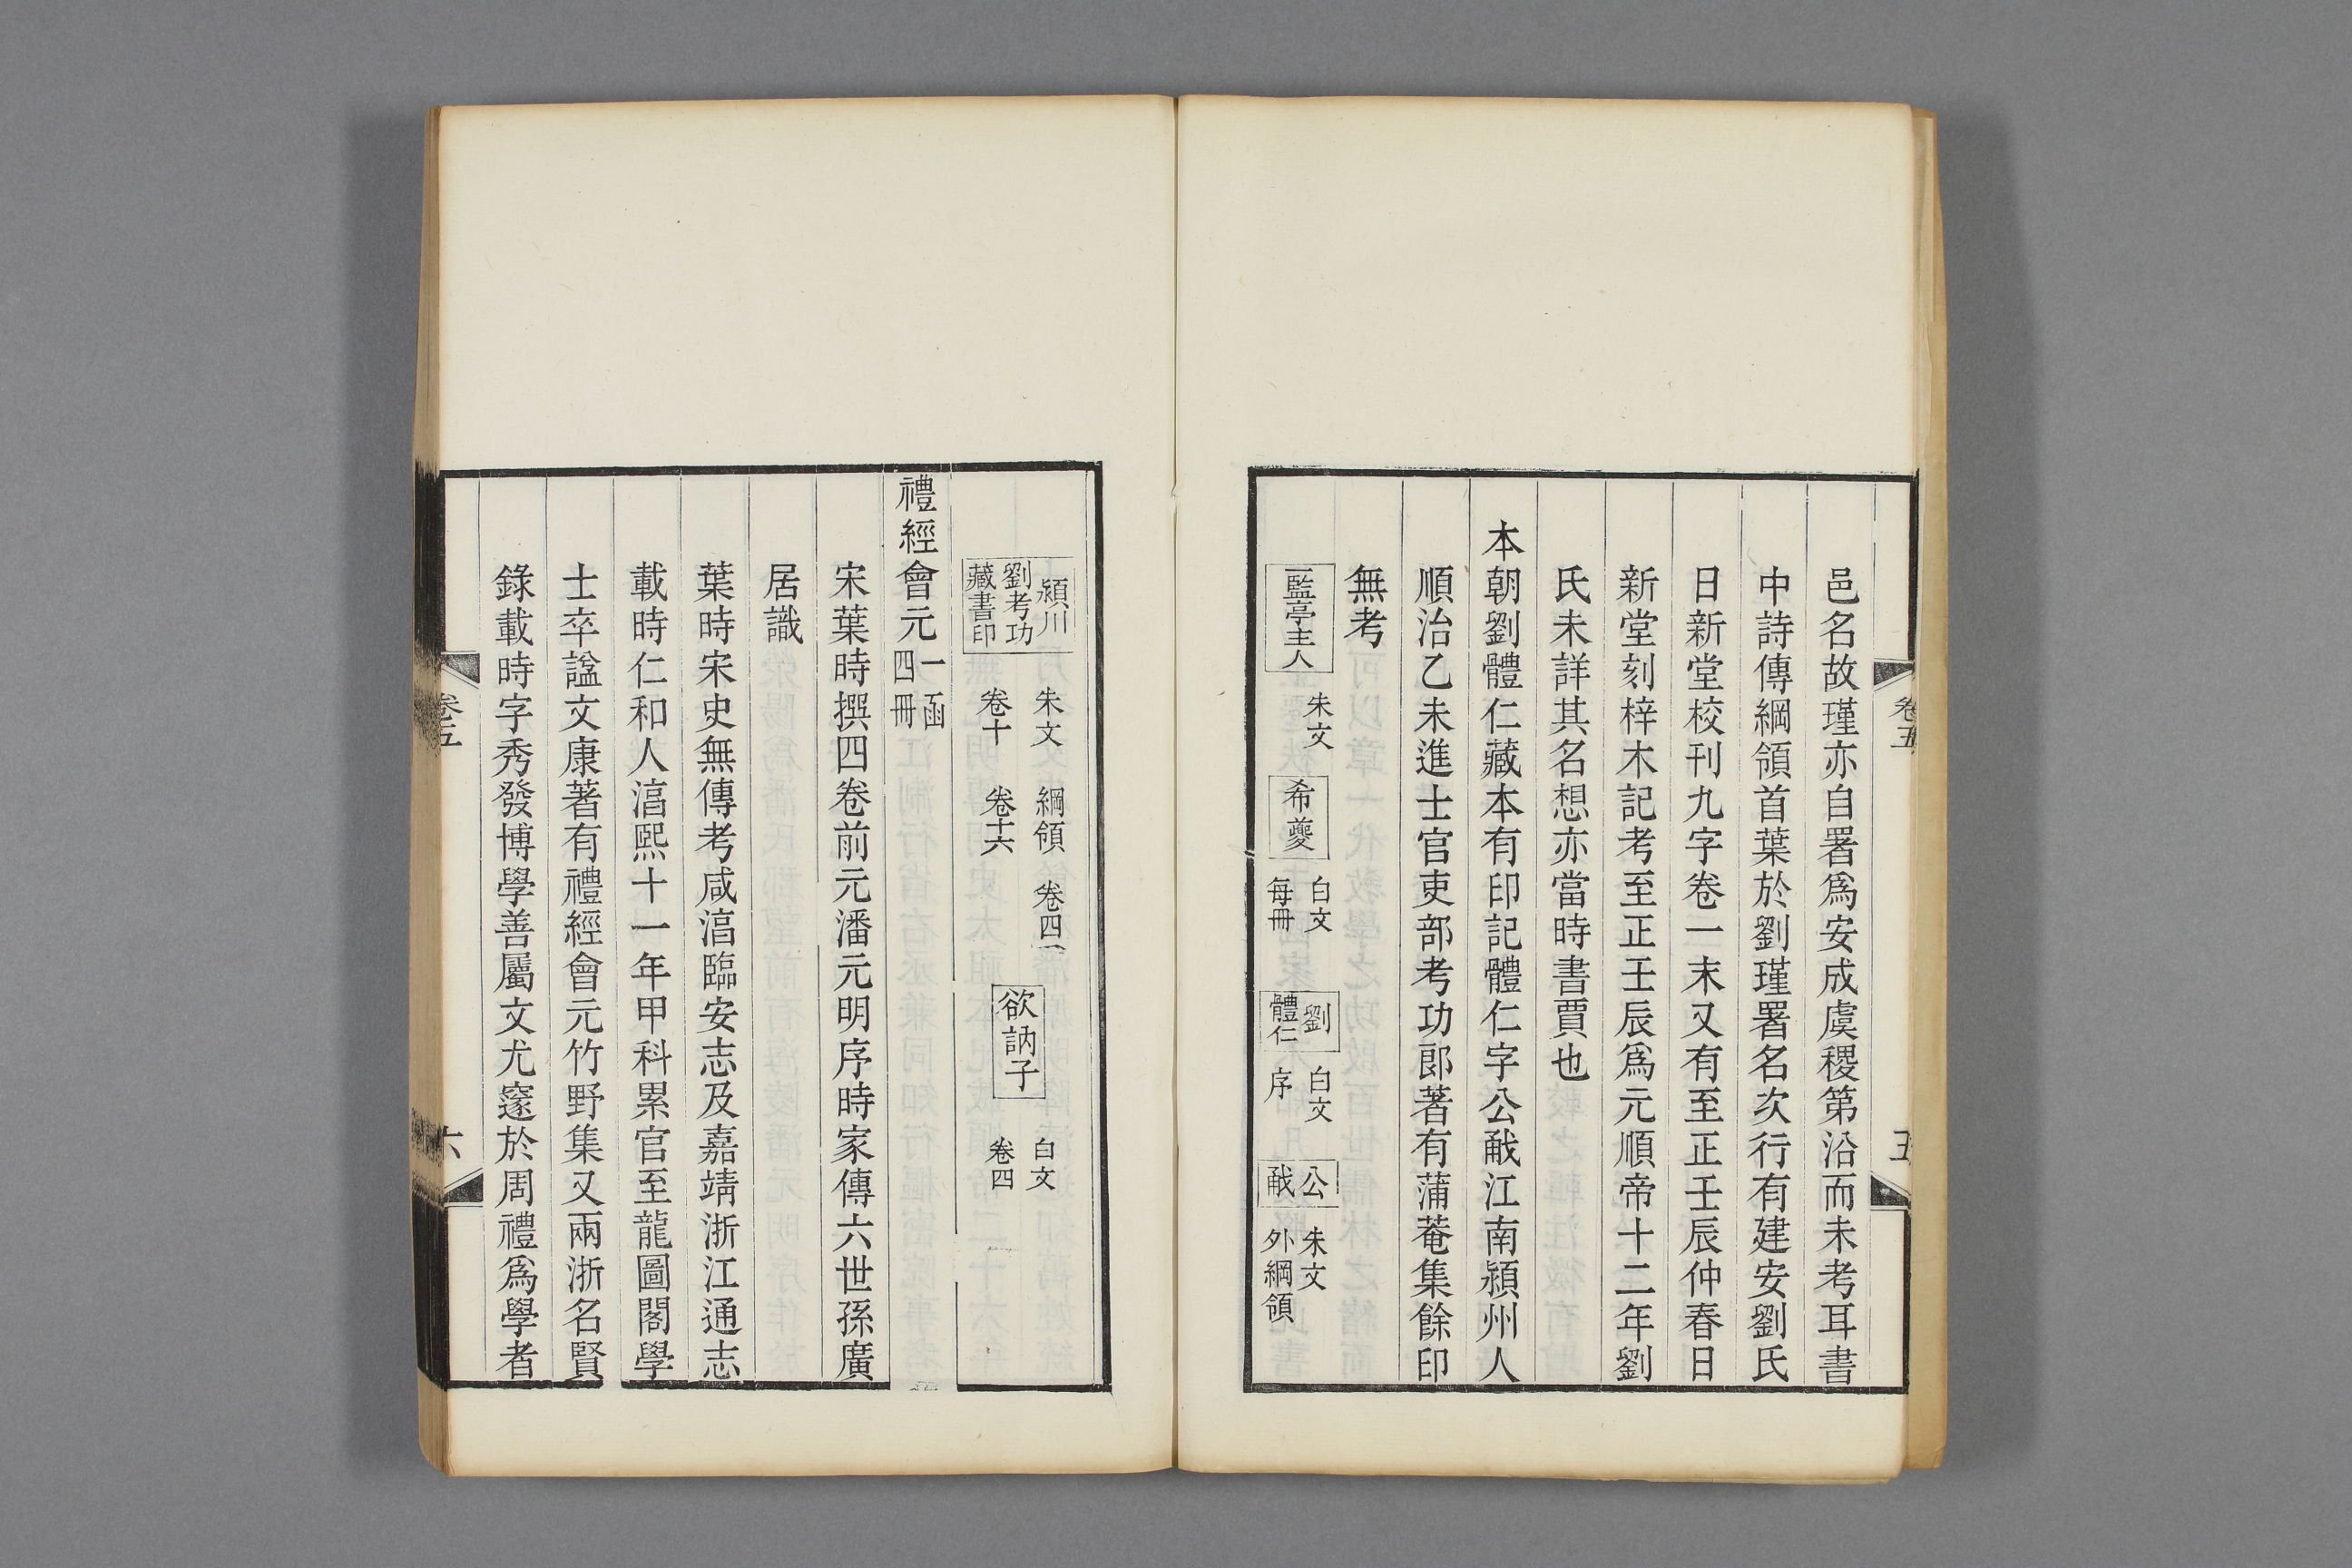 卷五
五
邑名故瑾亦自署爲安成虞稷第沿而未考耳書
中詩傳綱領首葉於劉瑾署名次行有建安劉氏
日新堂校刊九字卷一末又有至正壬辰仲春日
新堂刻梓木記考至正壬辰爲元順帝十二年劉
氏未詳其名想亦當時書賈也
本朝劉體仁藏本有印記體仁字公㦷江南潁州人
順治乙未進士官吏部考功郎著有蒲菴集餘印
無考
監亭主人 朱文 希夔 白文 每冊 劉體仁 白文 序 公㦷 朱文 外綱領
潁川劉考功藏書印 朱文 綱領 卷四 卷十 卷十六 欲訥子 白文 卷四
禮經會元 一函四冊
宋葉時撰四卷前元潘元明序時家傳六世孫廣
居識
葉時宋史無傳考咸湻臨安志及嘉靖浙江通志
載時仁和人湻熙十一年甲科累官至龍圖閣學
士卒諡文康著有禮經會元竹野集又兩浙名賢
錄載時字秀發博學善屬文尤邃於周禮爲學者
卷五
六